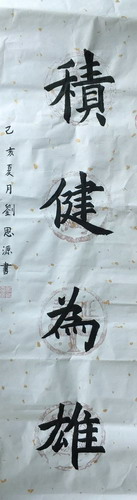 積健為雄
乙亥夏月劉思源書